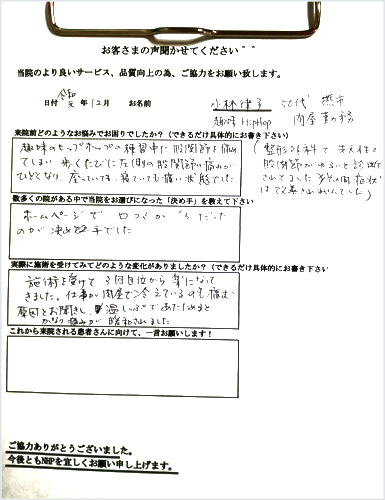 お客さまの声聞かせてください^^
当院のより良いサービス、品質向上の為、ご協力をお願い致します。
日付 令和元年12月 お名前 小林律子 50代 燕市
趣味HipHop 肉屋事務
来院前どのようなお悩みでお困りでしたか?(できるだけ具体的にお書き下さい)
趣味のヒップホップの練習中に股関節を痛め
てしまい 歩くたびに左側の股関節の痛みが
ひどくなり、座っていても寝ていても痛い状態でした
(整形外科で 先天性の
股関節
と診断
されてました その間症状
は改善されませんでした)
数多くの院がある中で当院をお選びになった「決め手」を教えて下さい
ホームページで 口コミが
のが決め手でした
実際に施術を受けてみてどのような変化がありましたか?(できるだけ具体的にお書き下さい
施術を受けて 3回目位から楽になって
きました。仕事が肉屋で冷えているのも痛む
原因とお聞きし 温しっぷであたためると
かなり痛みが緩和されました
これから来院される患者さんに向けて、一言お願いします!
ご協力ありがとうございました。
今後ともNHPを宜しくお願い申し上げます。